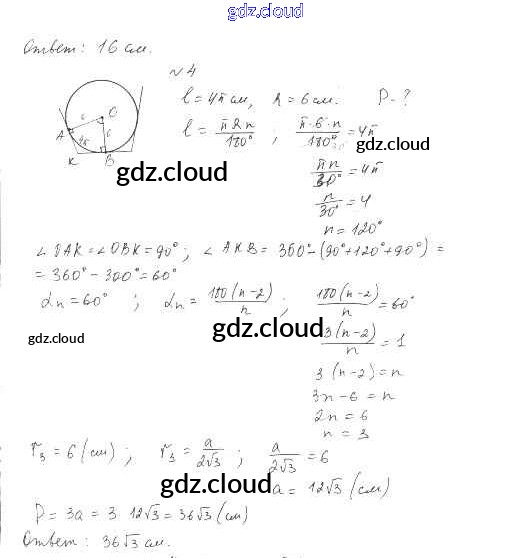 gdz.cloud
Ответ: 16 см.
№4
l = 4π см, R = 6 см. P - ?
l = πRn/180° ; π·6·n/180° = 4π
O
6
A 4π 6
K B
gdz.cloud
πn/30° = 4π
gdz.cloud
n/30° = 4
n = 120°
∠OAK = ∠OBK = 90° ; ∠AKB = 360° - (90° + 120° + 90°) =
= 360° - 300° = 60°
αn = 60° ; αn = 180(n-2)/n ; 180(n-2)/n = 60°
gdz.cloud
gdz.cloud
3(n-2)/n = 1
3(n-2) = n
3n - 6 = n
2n = 6
n = 3
r₃ = 6 (см) ; r₃ = a/2√3 ; a/2√3 = 6
gdz.cloud
a = 12√3 (см)
P = 3a = 3 · 12√3 = 36√3 (см)
gdz.cloud
Ответ: 36√3 см.